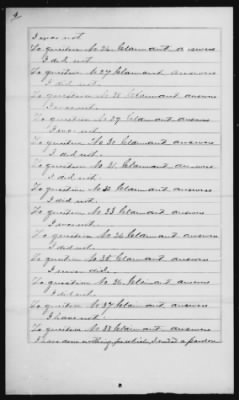 I was not
To question No 26 Claimant answers
I did not.
To question No 27 Claimant answers
I did not.
To question No 28 Claimant answers
I was not.
To question No 29 Claimant answers
I was not
To question No 30 Claimant answers
I did not.
To question No 31 Claimant answers
I did not.
To question No 32 Claimant answers
I did not.
To question No 33 Claimant answers
I was not.
To question No 34 Claimant answers
I did not.
To question No 35 Claimant answers
I never did.
To question No 36 Claimant answers
I did not.
To question No 37 Claimant answers
I have not.
To question No 38 Claimant answers
I have done nothing for which I need a pardon